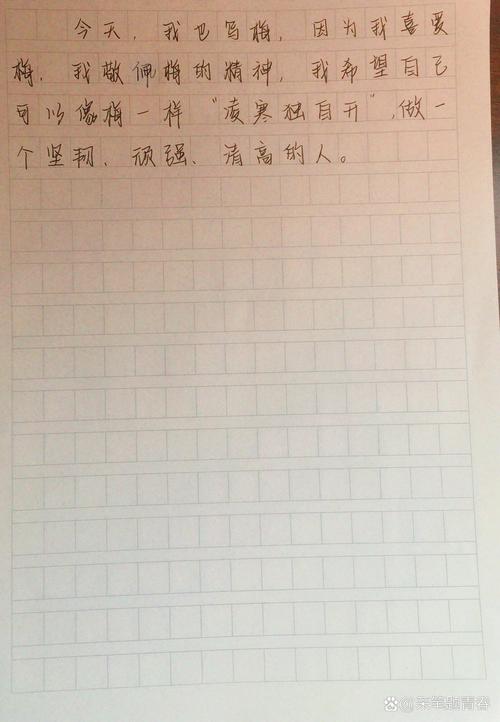 今天，我也写梅，因为我喜爱
梅，我敬佩梅的精神，我希望自己
可以像梅一样“凌寒独自开”，做一
个坚韧、顽强、清高的人。